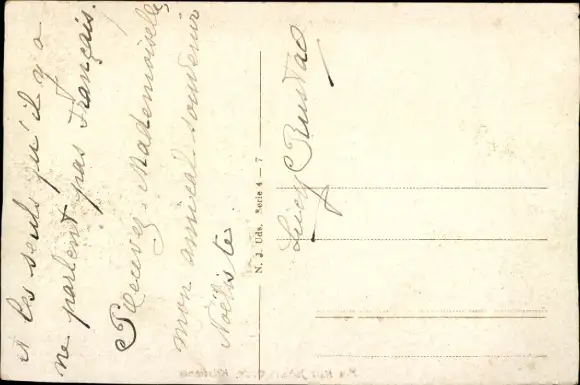 et les seuls qu'il y a
ne parlent pas Français.
Recevez, Mademoiselle
mon amical souvenir
Noëliste.
N. J. Uds. Serie 4 — 7
Lucy